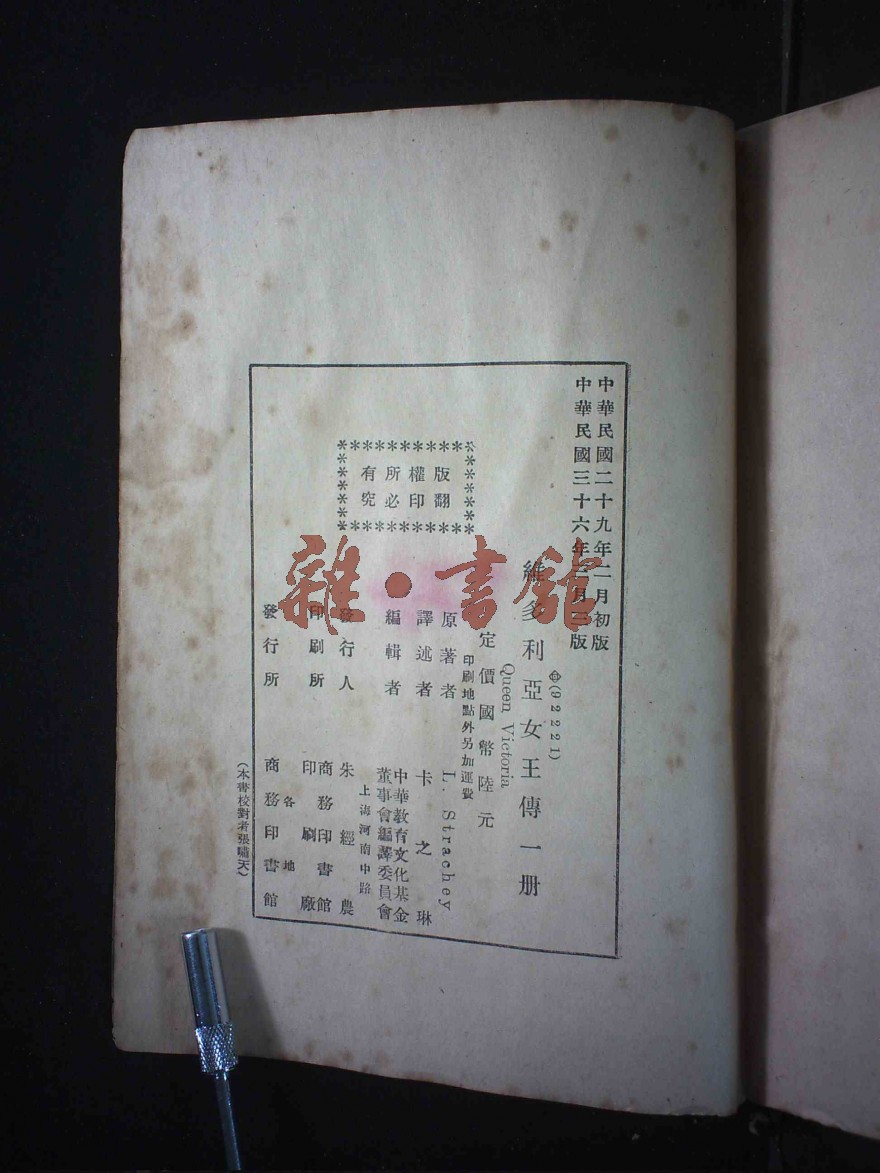 中華民國二十九年二月初版
中華民國三十六年三月三版
(92221)
維多利亞女王傳一册
Queen Victoria
定價國幣陸元
印刷地點外另加運費
原著者 L. Strachey
譯述者 卡之琳
編輯者 中華教育文化基金董事會編譯委員會
上海河南中路
發行人 朱經農
印刷所 商務印書館印刷廠
各地
發行所 商務印書館
(本書校對者張嘯天)
版權所有
翻印必究
雜·書館